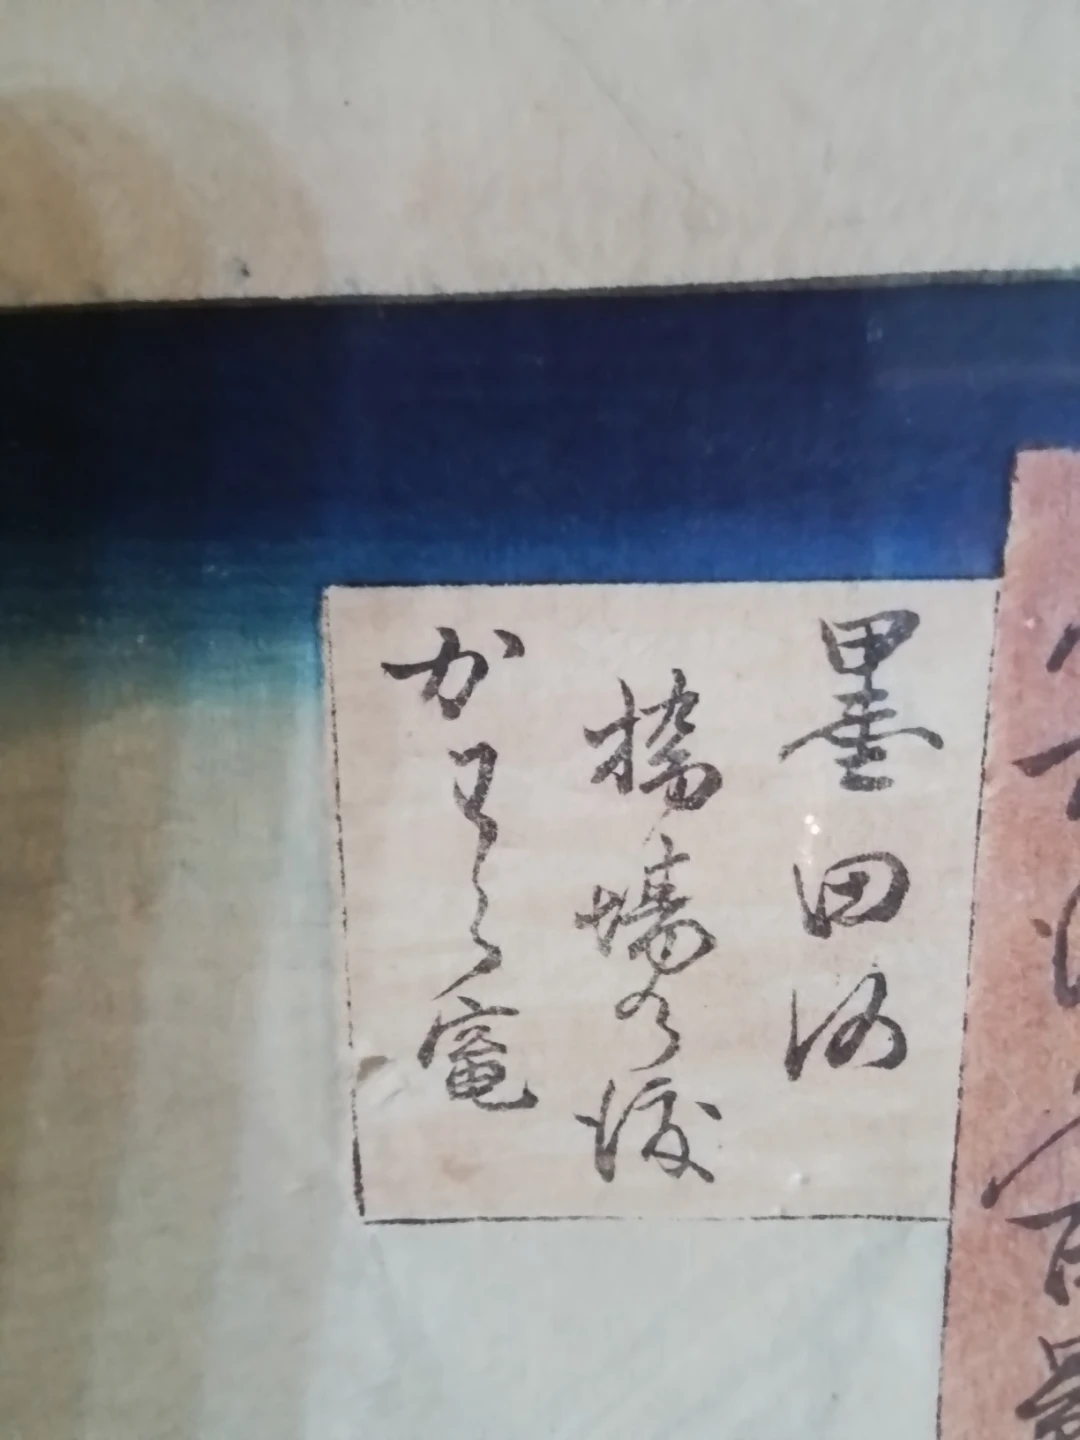 墨田河
橋場の渡
かわら竃